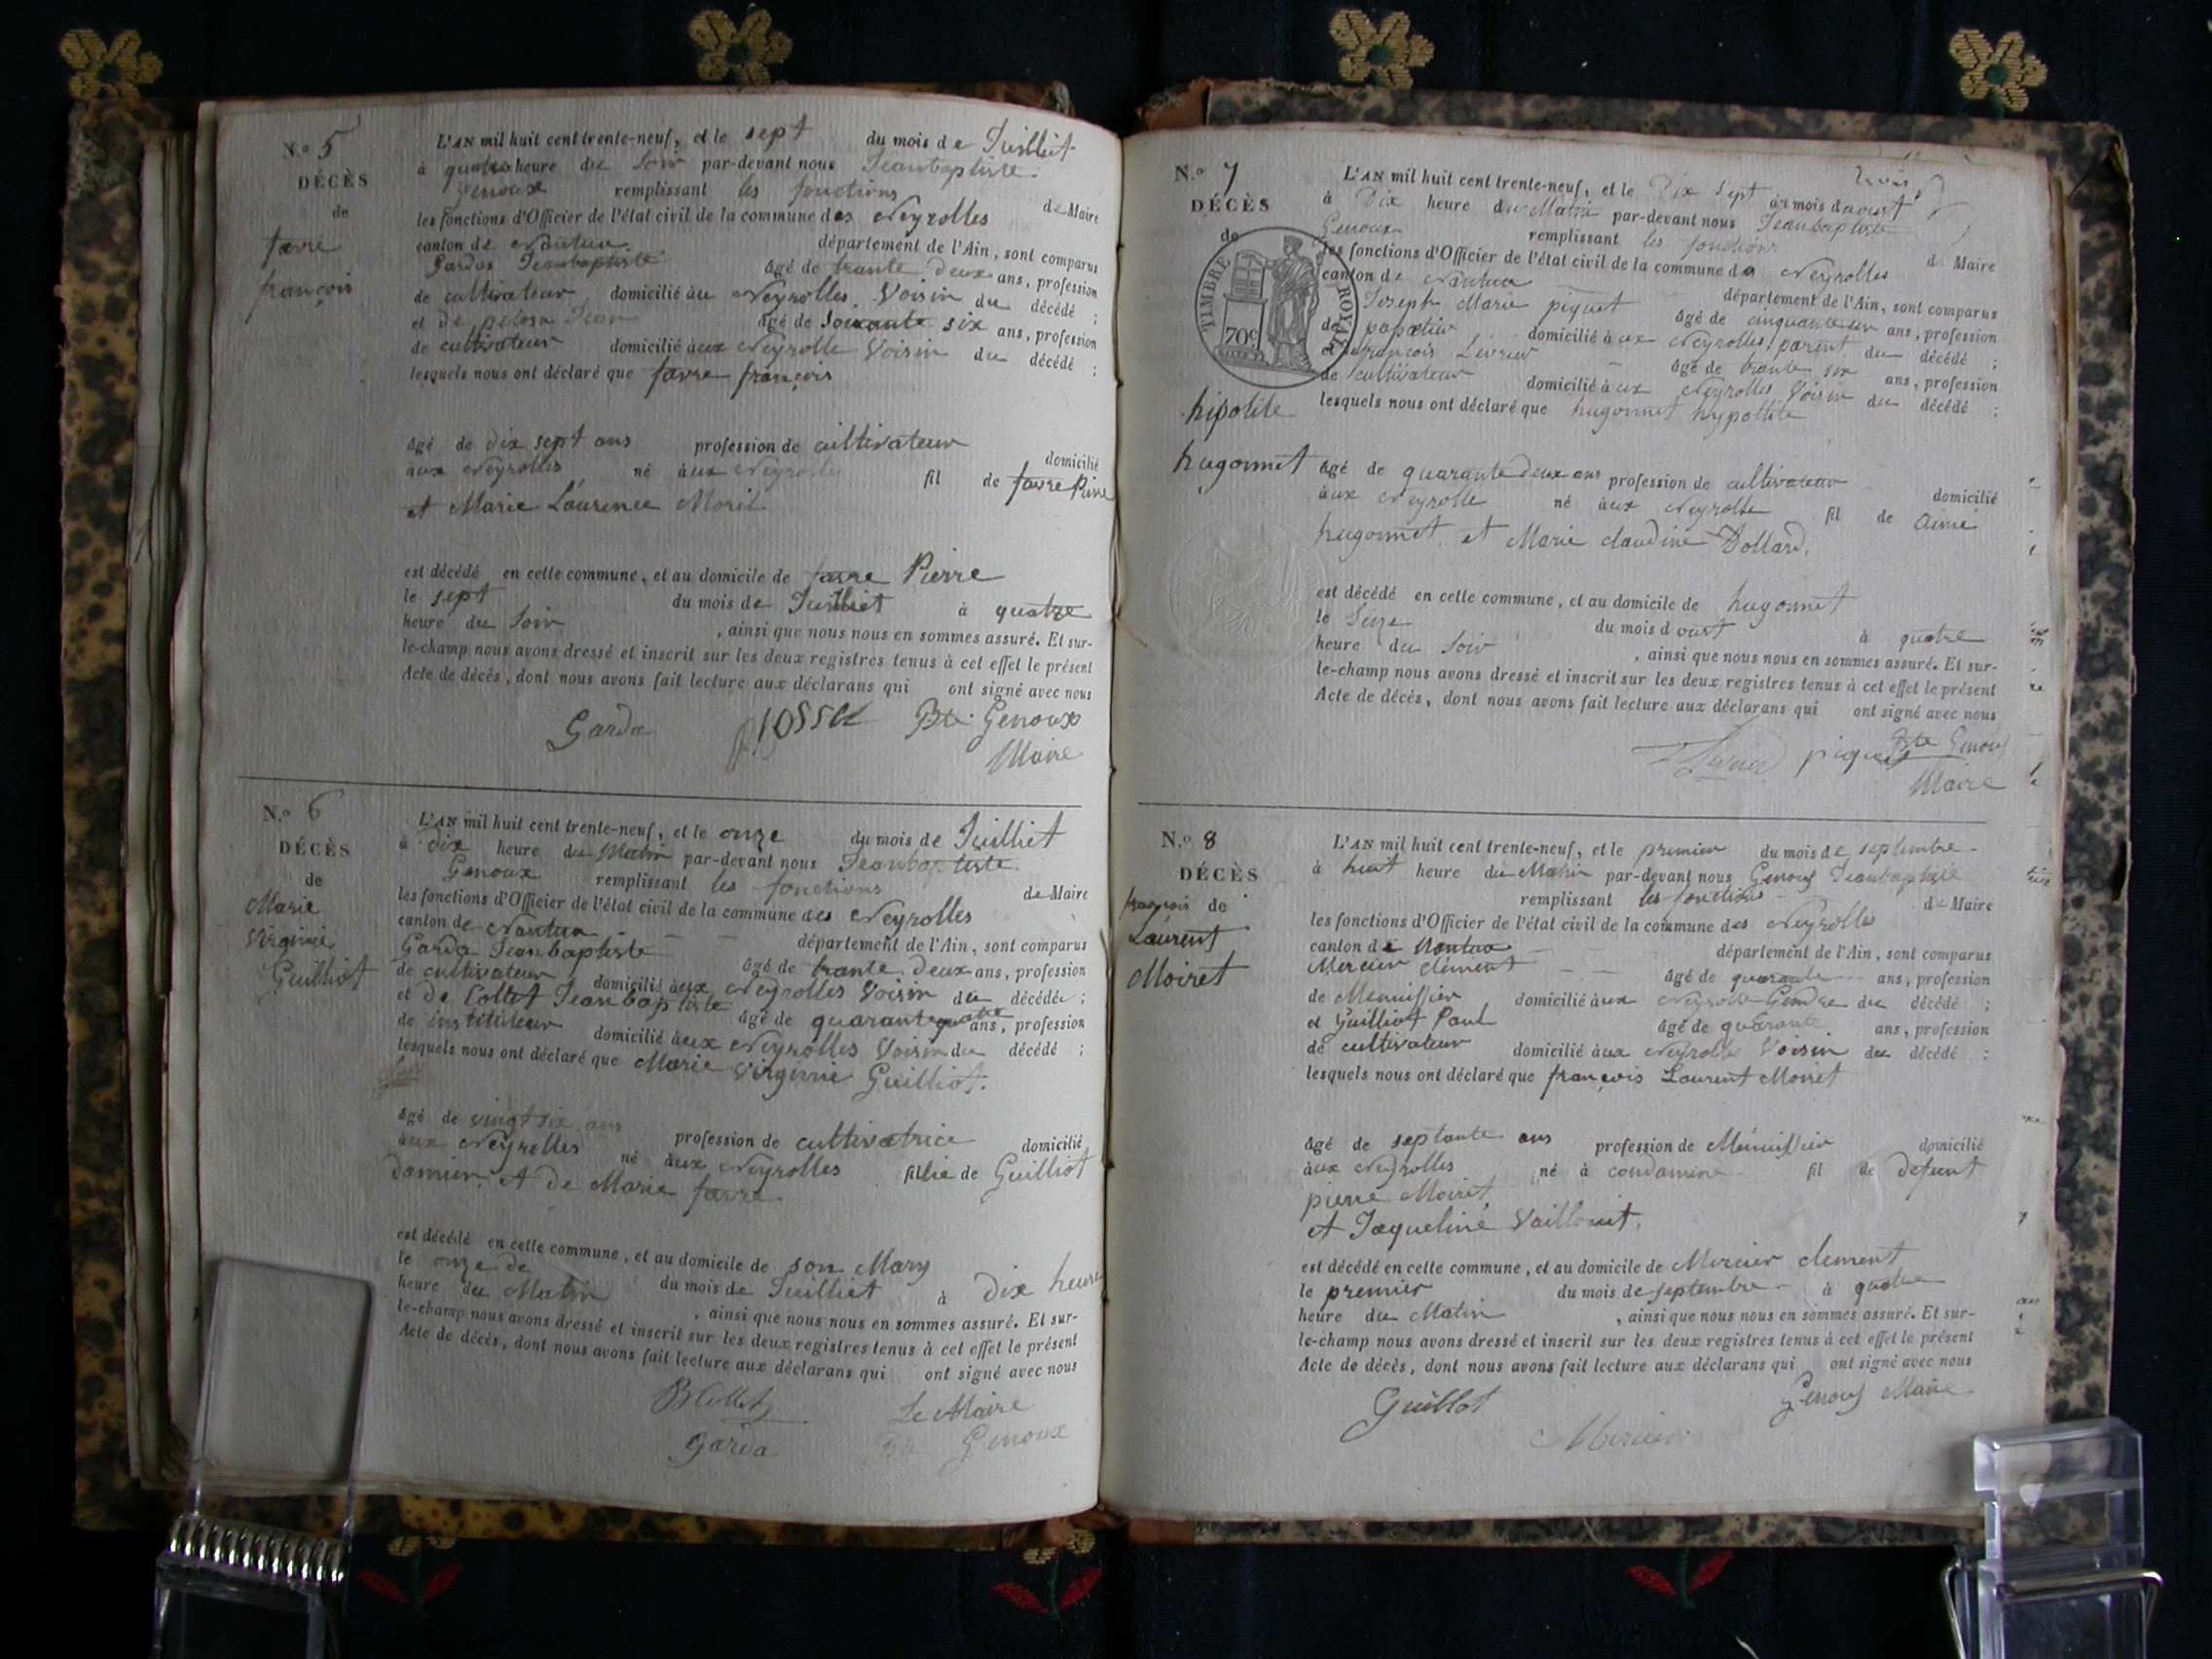 N.º 5
DÉCÈS
de
favre
françois
L'AN mil huit cent trente-neuf, et le sept du mois de Juilliet
à quatre heure du Soir par-devant nous Jeanbaptiste
Genoux remplissant les fonctions de Maire
les fonctions d'Officier de l'état civil de la commune des Neyrolles
canton de Nantua département de l'Ain, sont comparus
Gardas Jeanbaptiste âgé de trante deux ans, profession
de cultivateur domicilié aux Neyrolles Voisin du décédé ;
et de Jean âgé de Soixante six ans, profession
de cultivateur domicilié aux Neyrolle Voisin du décédé ;
lesquels nous ont déclaré que favre françois
âgé de dix sept ans profession de cultivateur domicilié
aux Neyrolles né aux Neyrolles fil de favre Pierre
et Marie Laurence Morel
est décédé en cette commune, et au domicile de favre Pierre
le sept du mois de Juilliet à quatre
heure du Soir , ainsi que nous nous en sommes assuré. Et sur-
le-champ nous avons dressé et inscrit sur les deux registres tenus à cet effet le présent
Acte de décès, dont nous avons fait lecture aux déclarans qui ont signé avec nous
Garda Bte Genoux
Maire
N.º 6
DÉCÈS
de
Marie
Virginie
Guilliot
L'AN mil huit cent trente-neuf, et le onze du mois de Juilliet
à Dix heure du Matin par-devant nous Jeanbaptiste
Genoux remplissant les fonctions de Maire
les fonctions d'Officier de l'état civil de la commune des Neyrolles
canton de Nantua département de l'Ain, sont comparus
Garda Jeanbaptiste âgé de trante deux ans, profession
de cultivateur domicilié aux Neyrolles Voisin du décédé ;
et de Collet Jeanbaptiste âgé de quarantequatre ans, profession
de instituteur domicilié aux Neyrolles Voisin du décédé ;
lesquels nous ont déclaré que Marie Virginie Guilliot.
âgé de vingt six ans profession de cultivatrice domicilié
aux Neyrolles né aux Neyrolles fillie de Guilliot
damien et de Marie favre.
est décédé en cette commune, et au domicile de son Mary
le onze de du mois de Juilliet à Dix heure
heure du Matin , ainsi que nous nous en sommes assuré. Et sur-
le-champ nous avons dressé et inscrit sur les deux registres tenus à cet effet le présent
Acte de décès, dont nous avons fait lecture aux déclarans qui ont signé avec nous
BCollet Le Maire
Garda Bte Genoux
trois
N.º 7
DÉCÈS
de
TIMBRE ROYAL
70c
hipolite
hugonnet
L'AN mil huit cent trente-neuf, et le Dix Sept du mois daoust
à Dix heure du Matin par-devant nous Jeanbaptiste
Genoux remplissant les fonctions de Maire
les fonctions d'Officier de l'état civil de la commune des Neyrolles
canton de Nantua département de l'Ain, sont comparus
Joseph Marie piquet âgé de cinquante un ans, profession
de papetier domicilié aux Neyrolles parent du décédé ;
et de françois Levrier âgé de trante six ans, profession
de cultivateur domicilié aux Neyrolles Voisin du décédé ;
lesquels nous ont déclaré que hugonnet hypolite
âgé de quarante deux ans profession de cultivateur domicilié
aux Neyrolle né aux Neyrolle fil de Aimé
hugonnet et Marie claudine Dollard.
est décédé en cette commune, et au domicile de hugonnet
le Seize du mois d oust à quatre
heure du Soir , ainsi que nous nous en sommes assuré. Et sur-
le-champ nous avons dressé et inscrit sur les deux registres tenus à cet effet le présent
Acte de décès, dont nous avons fait lecture aux déclarans qui ont signé avec nous
piquet Bte Genoux
Maire
N.º 8
DÉCÈS
françois de
Laurent
Moiret
L'AN mil huit cent trente-neuf, et le premier du mois de septembre
à huit heure du Matin par-devant nous Genoux Jeanbaptiste
remplissant les fonctions de Maire
les fonctions d'Officier de l'état civil de la commune des Neyrolles
canton de Nantua département de l'Ain, sont comparus
Mercier clément âgé de quarante ans, profession
de Menuissier domicilié aux Neyrolle Gendre du décédé ;
et Guilliot Paul âgé de quarante ans, profession
de cultivateur domicilié aux Neyrolle Voisin du décédé ;
lesquels nous ont déclaré que françois Laurent Moiret
âgé de septante ans profession de Menuissier domicilié
aux Neyrolles né à condamine fil de defunt
pierre Moiret
et Jaqueline Vaillouit.
est décédé en cette commune, et au domicile de Mercier clement
le premier du mois de septembre à quatre
heure du Matin , ainsi que nous nous en sommes assuré. Et sur-
le-champ nous avons dressé et inscrit sur les deux registres tenus à cet effet le présent
Acte de décès, dont nous avons fait lecture aux déclarans qui ont signé avec nous
Guillot Genoux Maire
Mercier